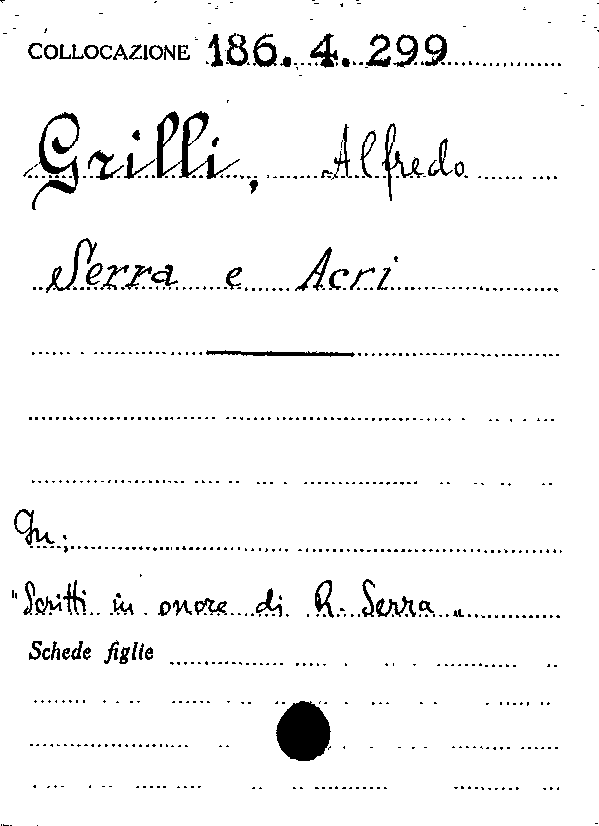 COLLOCAZIONE 186. 4. 299
Grilli, Alfredo
Serra e Acri
In:
"Scritti in onore di R. Serra"
Schede figlie